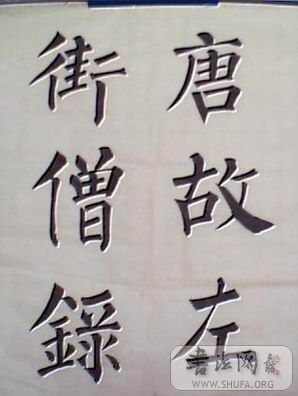 唐故左
街僧錄
书法网
WWW.SHUFA.ORG